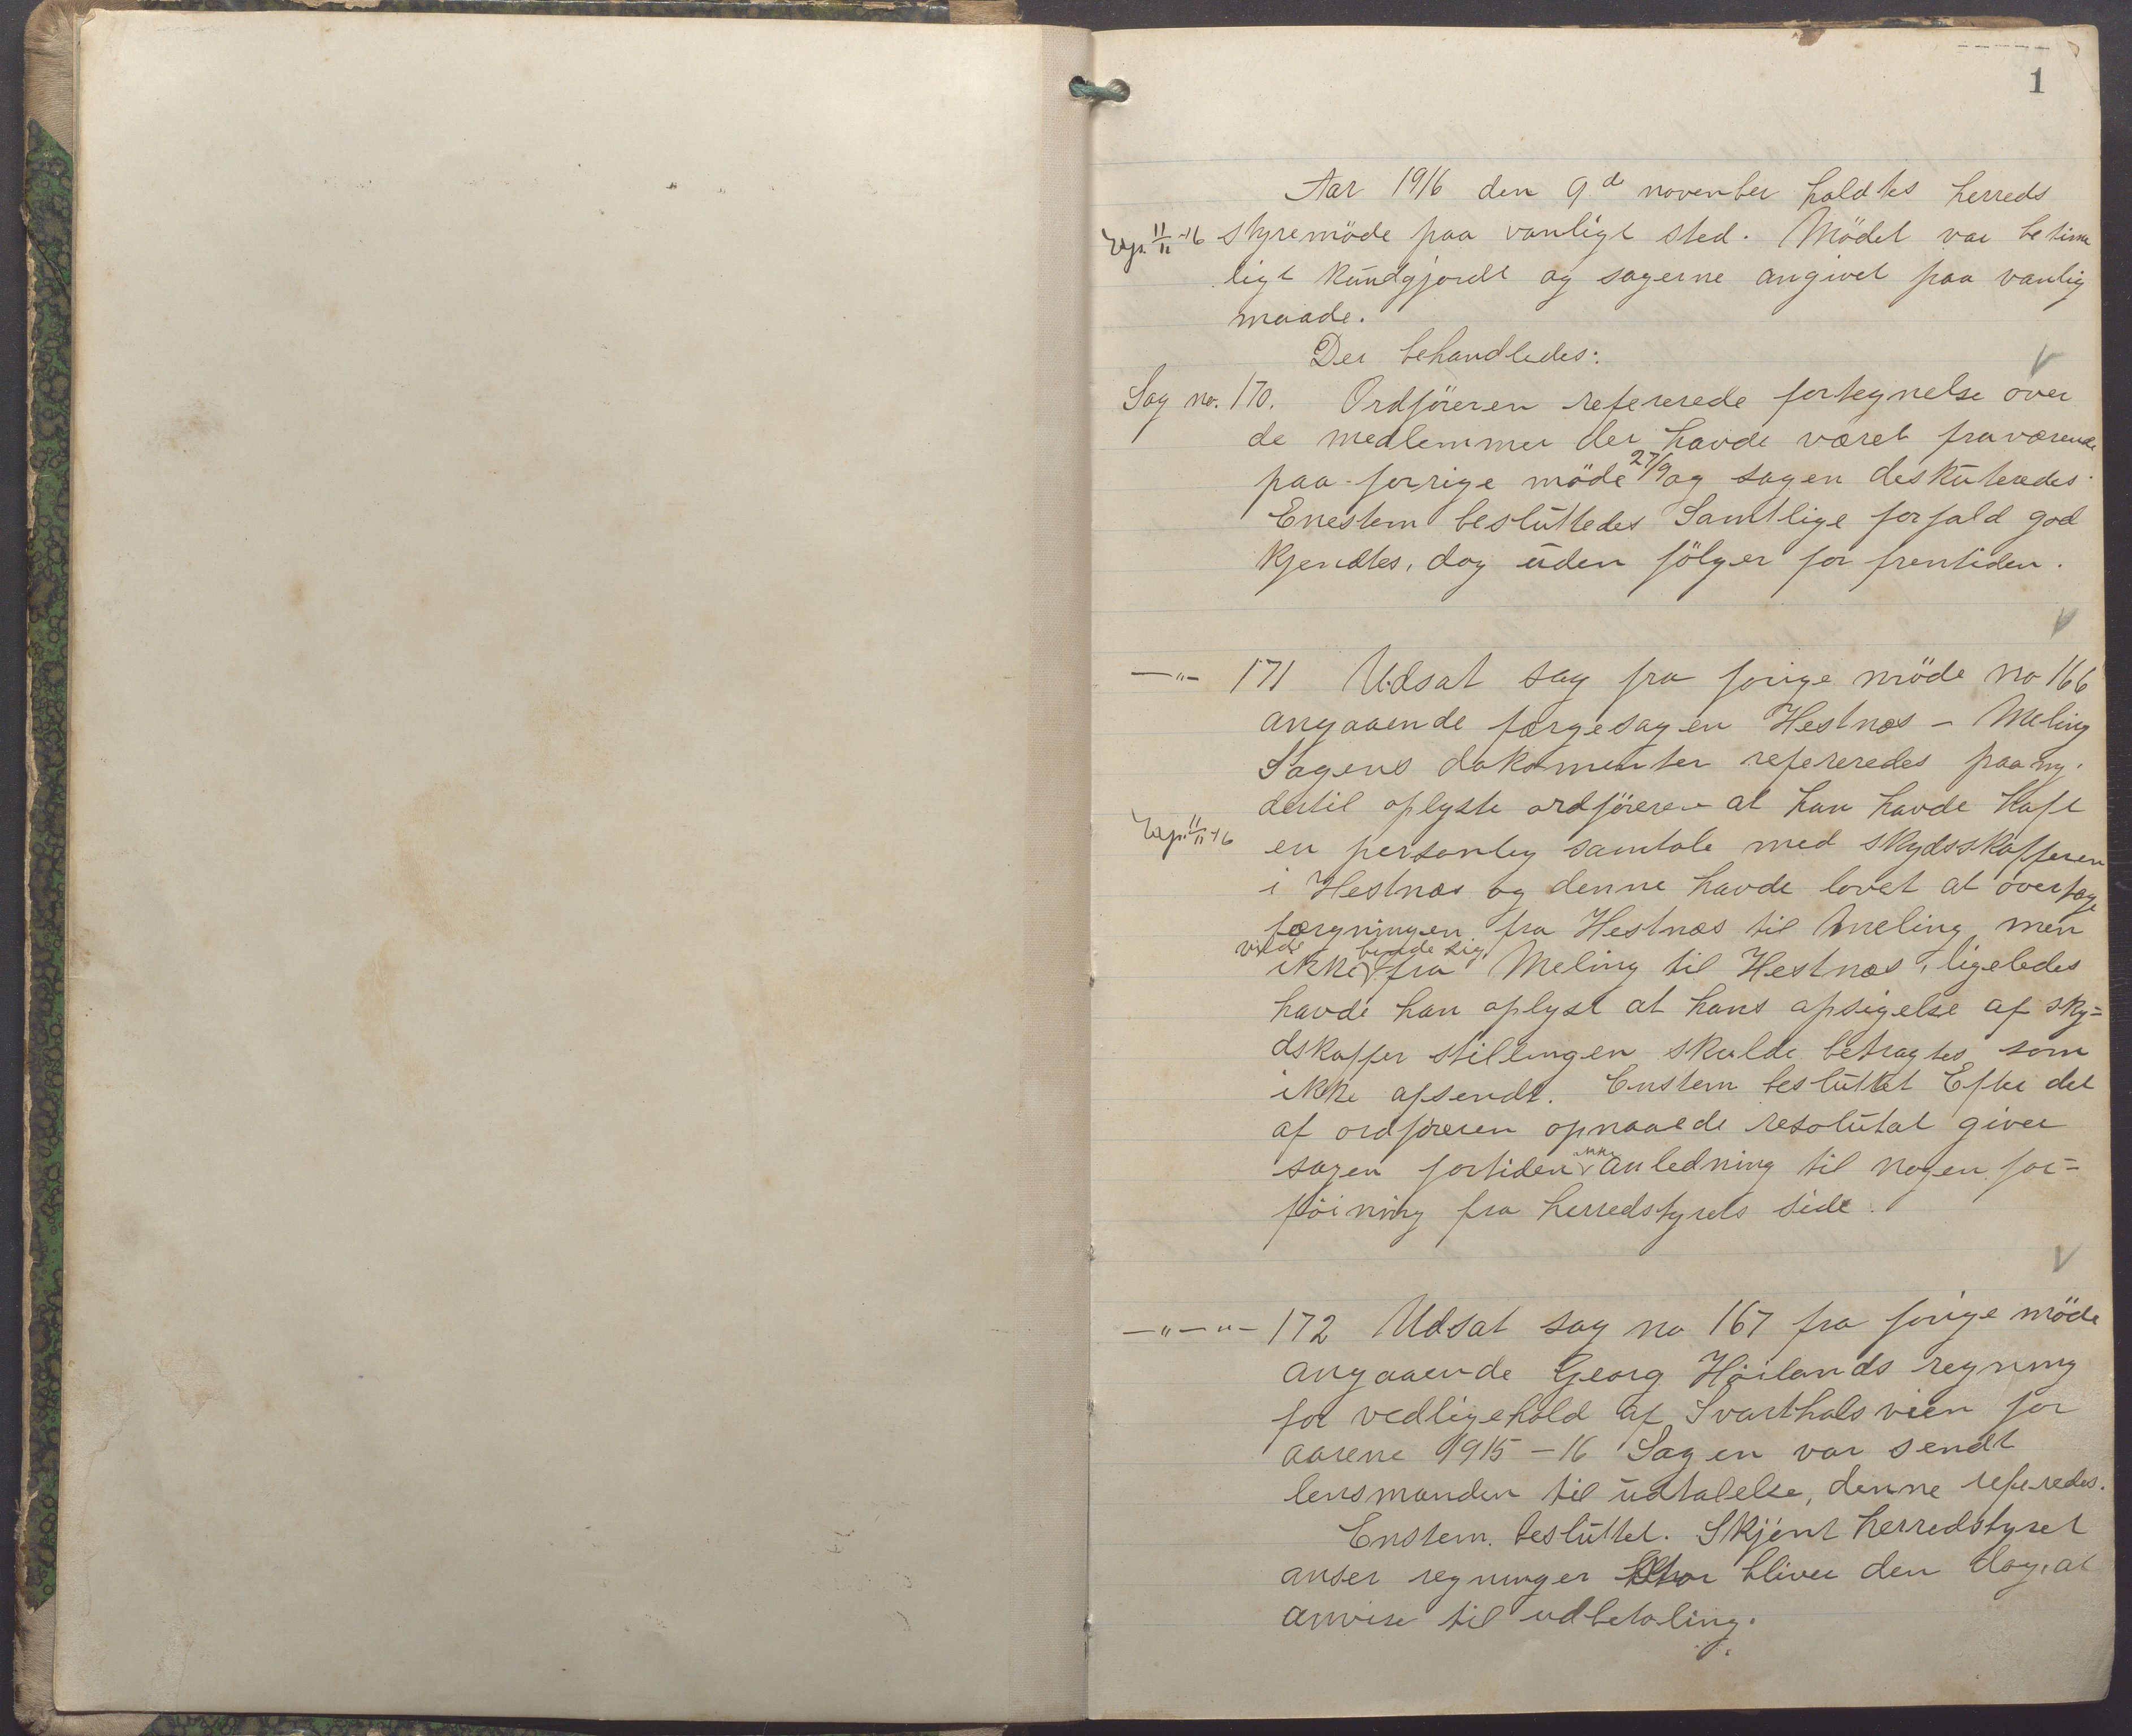 1
Aar 1916 den 9de november holdtes herreds
Exp. 11/11-16 styremöde paa vanligt sted. Mödet var betime
ligt kundgjordt og sagerne angivet paa vanlig
maade.
Der behandledes:
Sag no. 170. Ordföreren refererede fortegnelse over
de medlemmer der havde været fraværende
paa forrige möde 27/9 og sagen deskuteredes.
Enestem besluttedes Samtlige forfald god
kjendtes, dog uden fölger for fremtiden.
—"— 171 Udsat sag fra forige möde no 166
angaaende færgesagen Hestnæs – Meling
Sagens dokumenter refereredes paany.
dertil oplyste ordföreren at han havde haft
Exp. 11/11-16 en personlig samtale med skydsskafferen
i Hestnæs og denne havde lovet at overtage
færgningen fra Hestnæs til Meling men
vilde binde sig
ikke fra Meling til Hestnæs, ligeledes
havde han oplyst at hans opsigelse af sky=
dskaffer stillingen skulde betragtes som
ikke afsendt. Enstem besluttet Efter det
af ordföreren opnaaede resolutat giver
sagen fortiden ikke anledning til nogen for=
föining fra herredstyrets side.
—"—"— 172 Udsat sag no 167 fra forige möde
angaaende Georg Höilands regning
for vedligehold af Svarthalsveien for
aarene 1915–16 Sagen var sendt
lensmanden til udtalelse, denne referedes.
Enstem. besluttet. Skjönt herredstyret
anser regninger bliver den dog at
anvise til udbetaling.